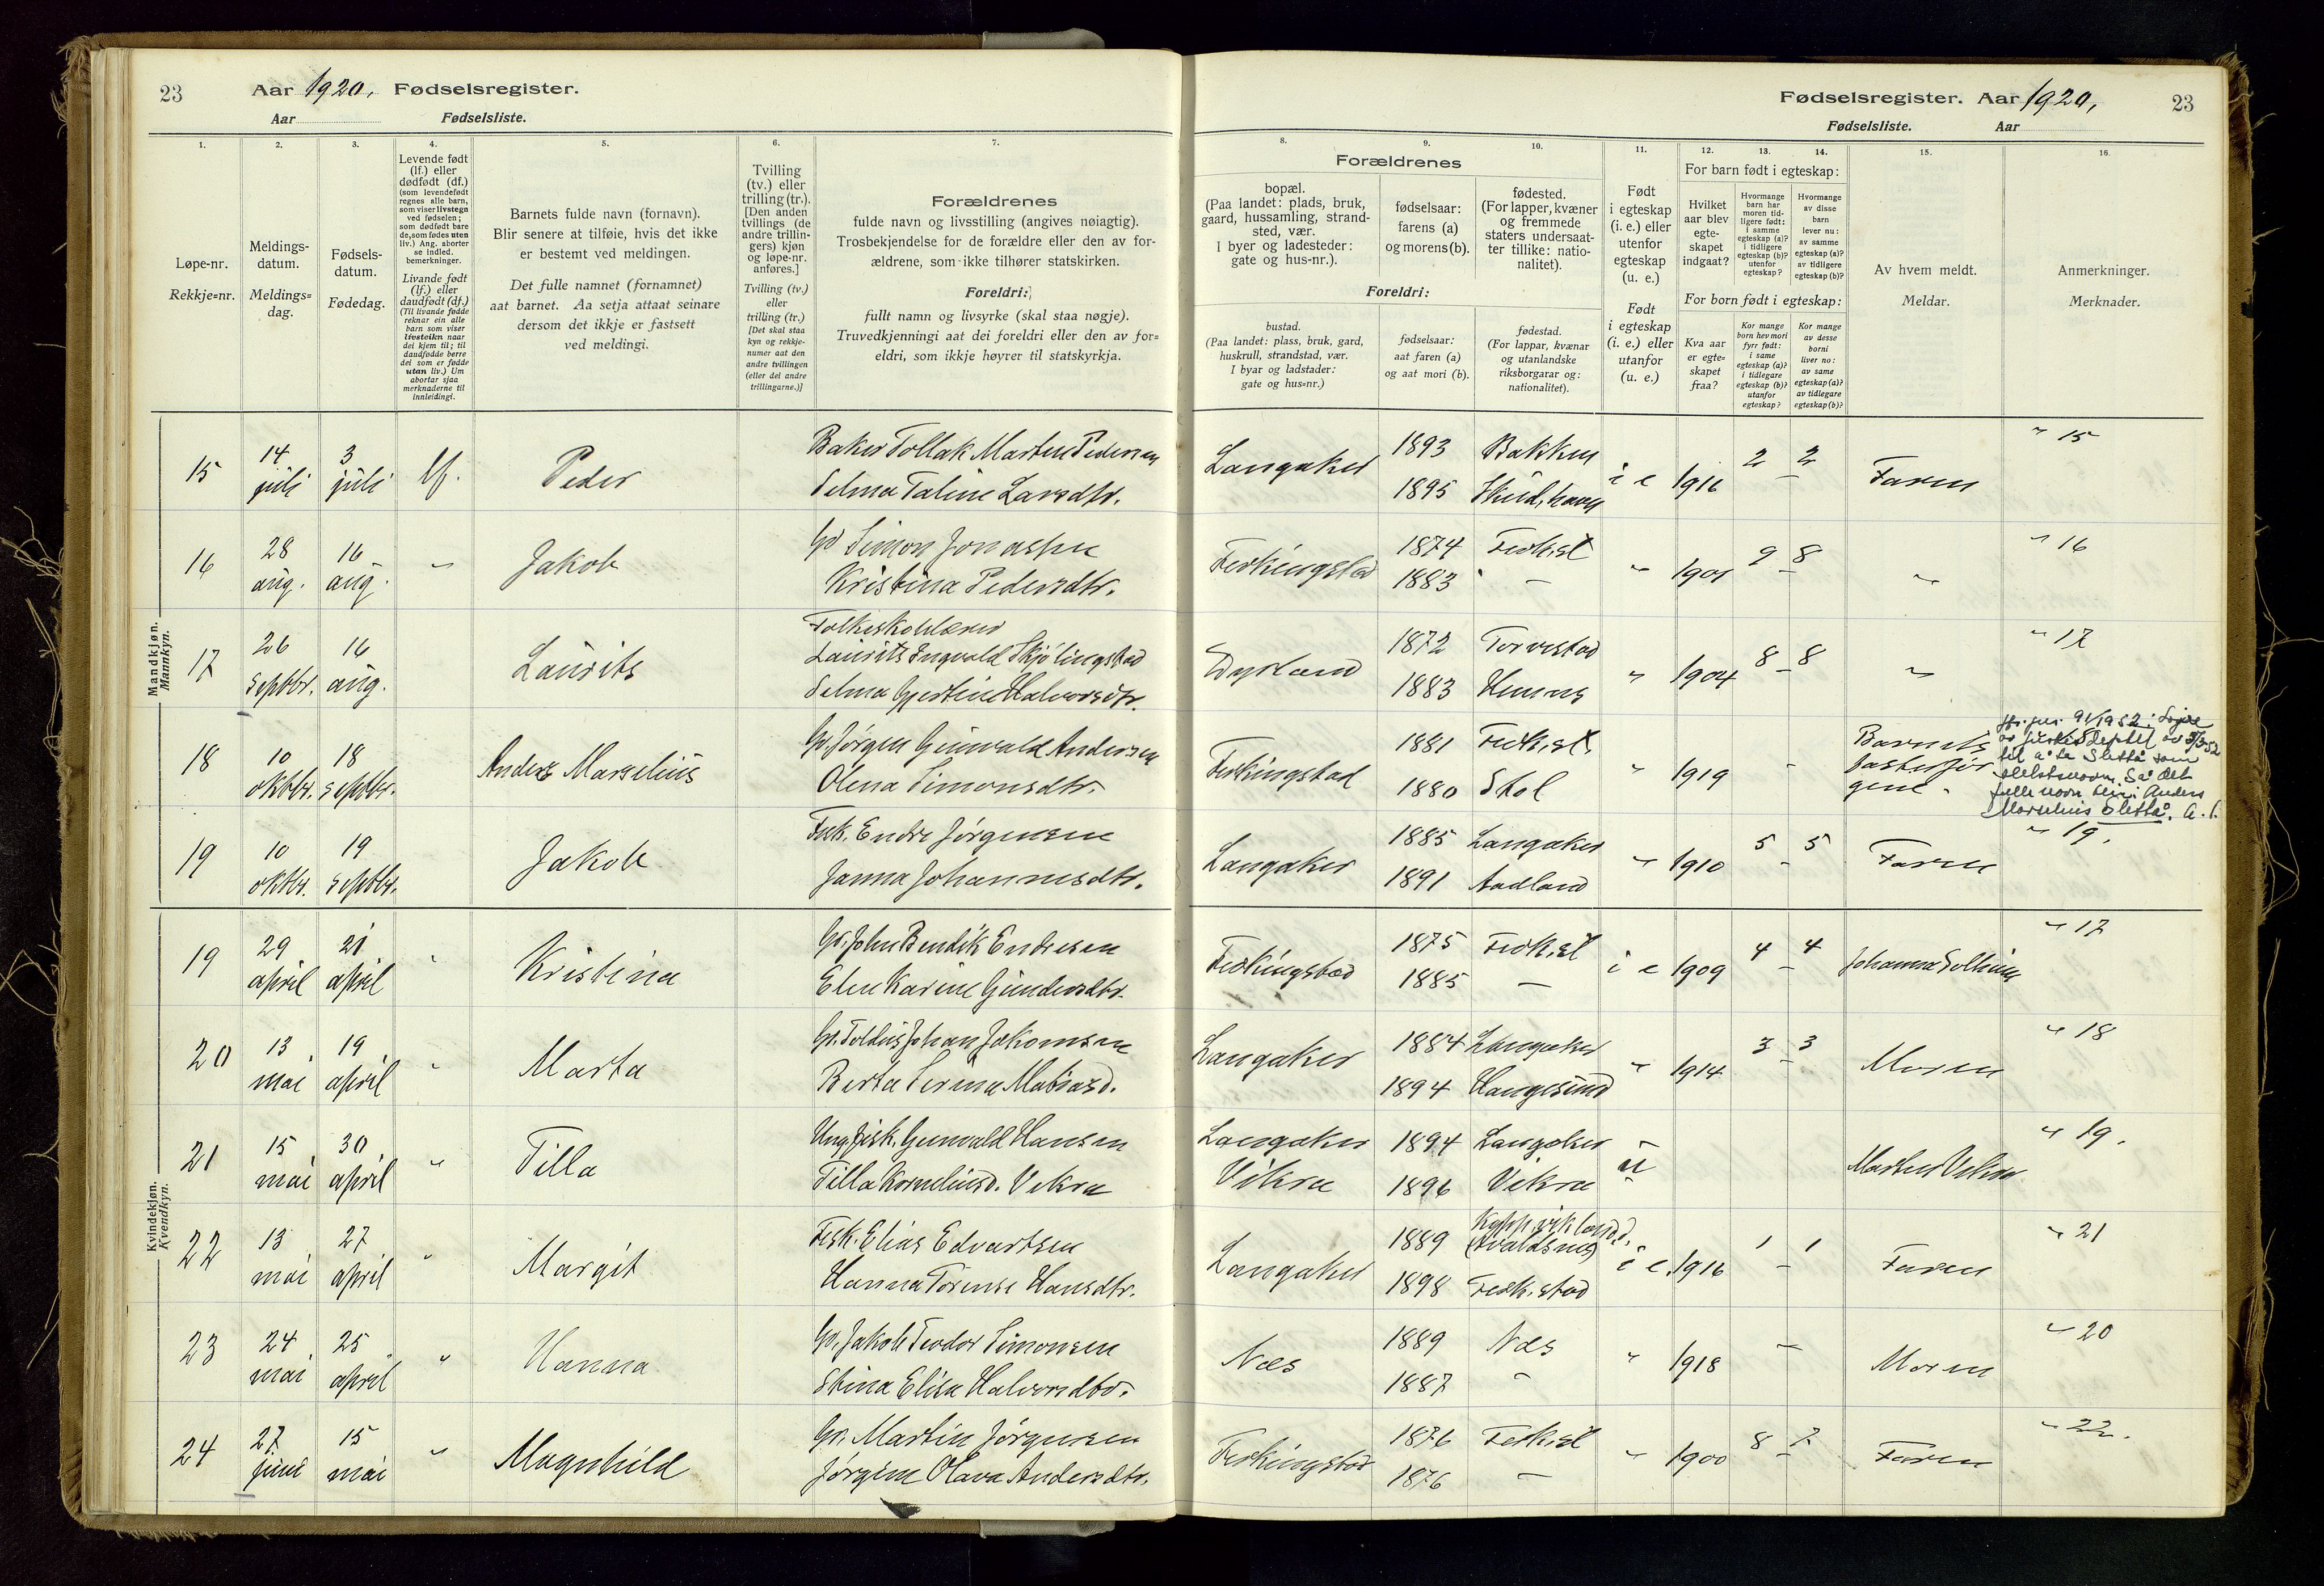 23 Aar 1920, Fødselsregister.
Aar Fødselsliste.
Fødselsregister. Aar 1920, 23
Fødselsliste. Aar
1. 2. 3. 4. 5. 6. 7.
Løpe-nr.
Rekkje=nr.
Meldings-
datum.
Meldings=
dag.
Fødsels-
datum.
Fødedag.
Levende født
(lf.) eller
dødfødt (df.)
(som levendefødt
regnes alle barn,
som viser livstegn
ved fødselen;
som dødfødt bare
de, som fødes uten
liv.) Ang. aborter
se indled.
bemerkninger.
Livande født
(lf.) eller
daudfødt (df.)
(Til livande fødde
reknar ein alle
barn som viser
livsteikn naar
dei kjem til; til
daudfødde berre
dei som er fødde
utan liv.) Um
abortar sjaa
merknaderne til
innleidingi.
Barnets fulde navn (fornavn).
Blir senere at tilføie, hvis det ikke
er bestemt ved meldingen.
Det fulle namnet (fornamnet)
aat barnet. Aa setja attaat seinare
dersom det ikkje er fastsett
ved meldingi.
Tvilling
(tv.) eller
trilling (tr.).
[Den anden
tvillings (de
andre trillin-
gers) kjøn
og løpe-nr.
anføres.]
Tvilling (tv.)
eller
trilling (tr.)
[Det skal staa
kyn og rekkje-
numer aat den
andre tvillingen
(eller dei andre
trillingarne.)]
Forældrenes
fulde navn og livsstilling (angives nøiagtig).
Trosbekjendelse for de forældre eller den av for-
ældrene, som ikke tilhører statskirken.
Foreldri:
fullt namn og livsyrke (skal staa nøgje).
Truvedkjenningi aat dei foreldri eller den av for=
eldri, som ikkje høyrer til statskyrkja.
8. 9. 10. 11. 12. 13. 14. 15. 16.
Forældrenes
bopæl.
(Paa landet: plads, bruk,
gaard, hussamling, strand-
sted, vær.
I byer og ladesteder:
gate og hus-nr.).
fødselsaar:
farens (a)
og morens (b).
fødested.
(For lapper, kvæner
og fremmede
staters undersaat-
ter tillike: natio-
nalitet).
Foreldri:
bustad.
(Paa landet: plass, bruk, gard,
huskrull, strandstad, vær.
I byar og ladstader:
gate og hus=nr.)
fødselsaar:
aat faren (a)
og aat mori (b).
fødestad.
(For lappar, kvænar
og utanlandske
riksborgarar og:
nationalitet).
Født
i egteskap
(i. e.) eller
utenfor
egteskap
(u. e.)
Født
i egteskap
(i. e.) eller
utanfor
(u. e.)
For barn født i egteskap:
Hvilket
aar blev
egte-
skapet
indgaat?
Hvormange
barn har
moren tid-
ligere født:
i samme
egteskap (a)?
i tidligere
egteskap (b)?
utenfor
egteskap?
Hvormange
av disse
barn
lever nu:
av samme
egteskap (a)?
av tidligere
egteskap (b)?
For born født i egteskap:
Kva aar
er egte-
skapet
fraa?
Kor mange
born hev mori
fyrr født:
i same
egteskap (a)?
i tidlegare
egteskap (b)?
utanfor
egteskap?
Kor mange
av desse
borni
liver no:
av same
egteskap (a)?
av tidlegare
egteskap (b)?
Av hvem meldt.
Meldar.
Anmerkninger.
Merknader.
Mandkjøn.
Mannkyn.
15 14 juli 3 juli lf. Peder Baker Tollak Marten Pedersen Langaker 1893 Bakken i e 1916 2 – 2 Faren " 15
Selma Taline Larsdtr. 1895 Skud.havn
16 28 aug. 16 aug. " Jakob Gb Simon Jonassen Ferkingstad 1874 Ferk.st " 1901 9 – 8 " " 16
Kristina Pedersdtr. 1883 –
17 26 septbr. 16 aug. Laurits Folkeskolelærer
Laurits Ingvald Skjølingstad Dyrland 1872 Torvestad " 1904 8 – 8 " " 17
Selma Gjertine Halvorsdtr. 1883 Hemnes
18 10 oktbr. 18 septbr. Anders Marselius Gb. Jørgen Gunvald Andersen Ferkingstad 1881 Ferk.st. " 1919 - Barnets
Olena Simonsdtr. 1880 Stol
til å ta Slettå som
slektsnavn. Så det
fulle navn blir: Anders
Marselius Slettå.
19 10 oktbr. 19 septbr. Jakob Fisk. Endre Jørgensen Langaker 1885 Langaker " 1910 5 – 5 Faren " 19.
Janna Johannesdtr. 1891 Aadland
Kvindekjøn.
Kvendkyn.
19 29 april 21 april " Kristina Gb. John Bendik Endresen Ferkingstad 1875 Ferk.st i e 1909 4 – 4 Johanna " 17
Elen Karine Gundersdtr. 1885 –
20 13 mai 19 april " Marta Gb. Johan Jakomsen Langaker 1884 Langaker " 1914 3 – 3 Moren " 18
Berta Serina Matiasd. 1894 Haugesund
21 15 mai 30 april " Tilla Ung. fisk. Gunvald Hansen Langaker 1894 Langaker u Markus Vikra " 19.
Tilla Korneliusd. Vikra Vikra 1896 Vikra
22 13 mai 27 april " Margit Fisk. Elias Edvartsen Langaker 1889 (Avaldsnes) i e. 1916 1 – 1 Faren " 21
Hanna Torense Hansdtr. 1898 Ferk.stad
23 24 mai 25 april " Hanna Gb. Jakob Teodor Simonsen Næs 1889 Næs " 1918 – Moren " 20
Stina Elisa Halvorsdtr. 1887 –
24 27 juni 15 mai " Magnhild Gb. Martin Jørgensen Ferkingstad 1876 Ferk.st " 1900 8 – 7 Faren " 22.
Jørgine Olava Andersdtr. 1876 –